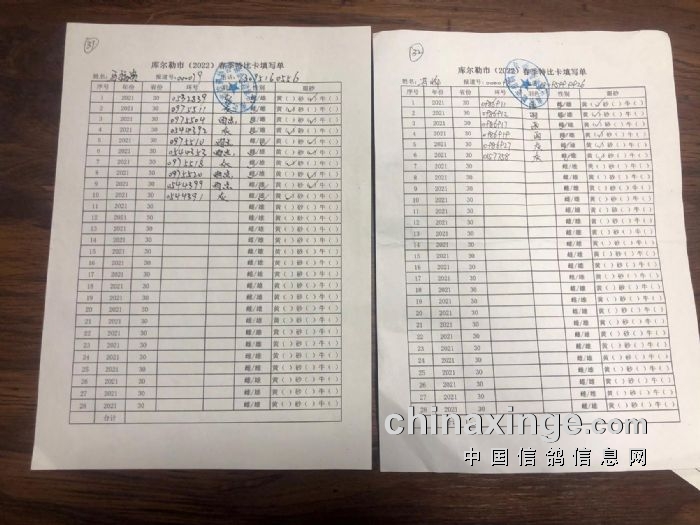 31
库尔勒市（2022）春季特比卡填写单
姓名： 报道号:00019 电话:
序号 年份 省份 环号 羽色 性别 眼砂
1 2021 30 雌/雄 黄（ ）砂（✓）牛（ ）
2 2021 30 0975511 灰 雌/雄 黄（ ）砂（ ）牛（ ）
3 2021 30 0975504 雌/雄 黄（ ）砂（ ）牛（ ）
4 2021 30 0544392 灰 雌/雄 黄（ ）砂（ ）牛（ ）
5 2021 30 0975510 雌/雄 黄（ ）砂（ ）牛（ ）
6 2021 30 0544352 灰 雌/雄 黄（ ）砂（ ）牛（ ）
7 2021 30 0975518 灰 雌/雄 黄（ ）砂（ ）牛（ ）
8 2021 30 0975520 雌/雄 黄（ ）砂（ ）牛（ ）
9 2021 30 0544399 雌/雄 黄（ ）砂（ ）牛（ ）
10 2021 30 0544391 灰 雌/雄 黄（ ）砂（ ）牛（ ）
11 2021 30 雌/雄 黄（ ）砂（ ）牛（ ）
12 2021 30 雌/雄 黄（ ）砂（ ）牛（ ）
13 2021 30 雌/雄 黄（ ）砂（ ）牛（ ）
14 2021 30 雌/雄 黄（ ）砂（ ）牛（ ）
15 2021 30 雌/雄 黄（ ）砂（ ）牛（ ）
16 2021 30 雌/雄 黄（ ）砂（ ）牛（ ）
17 2021 30 雌/雄 黄（ ）砂（ ）牛（ ）
18 2021 30 雌/雄 黄（ ）砂（ ）牛（ ）
19 2021 30 雌/雄 黄（ ）砂（ ）牛（ ）
20 2021 30 雌/雄 黄（ ）砂（ ）牛（ ）
21 2021 30 雌/雄 黄（ ）砂（ ）牛（ ）
22 2021 30 雌/雄 黄（ ）砂（ ）牛（ ）
23 2021 30 雌/雄 黄（ ）砂（ ）牛（ ）
24 2021 30 雌/雄 黄（ ）砂（ ）牛（ ）
25 2021 30 雌/雄 黄（ ）砂（ ）牛（ ）
26 2021 30 雌/雄 黄（ ）砂（ ）牛（ ）
27 2021 30 雌/雄 黄（ ）砂（ ）牛（ ）
28 2021 30 雌/雄 黄（ ）砂（ ）牛（ ）
合计
32
库尔勒市（2022）春季特比卡填写单
姓名： 报道号:
序号 年份 省份 环号 羽色 性别 眼砂
1 2021 30 0986911 雌/雄 黄（ ）砂（ ）牛（ ）
2 2021 30 0986912 雌/雄 黄（ ）砂（ ）牛（ ）
3 2021 30 0986917 雌/雄 黄（ ）砂（ ）牛（ ）
4 2021 30 0986919 雌/雄 黄（ ）砂（ ）牛（ ）
5 2021 30 0986927 灰 雌/雄 黄（ ）砂（ ）牛（ ）
6 2021 30 灰 雌/雄 黄（ ）砂（ ）牛（ ）
7 2021 30 雌/雄 黄（ ）砂（ ）牛（ ）
8 2021 30 雌/雄 黄（ ）砂（ ）牛（ ）
9 2021 30 雌/雄 黄（ ）砂（ ）牛（ ）
10 2021 30 雌/雄 黄（ ）砂（ ）牛（ ）
11 2021 30 雌/雄 黄（ ）砂（ ）牛（ ）
12 2021 30 雌/雄 黄（ ）砂（ ）牛（ ）
13 2021 30 雌/雄 黄（ ）砂（ ）牛（ ）
14 2021 30 雌/雄 黄（ ）砂（ ）牛（ ）
15 2021 30 雌/雄 黄（ ）砂（ ）牛（ ）
16 2021 30 雌/雄 黄（ ）砂（ ）牛（ ）
17 2021 30 雌/雄 黄（ ）砂（ ）牛（ ）
18 2021 30 雌/雄 黄（ ）砂（ ）牛（ ）
19 2021 30 雌/雄 黄（ ）砂（ ）牛（ ）
20 2021 30 雌/雄 黄（ ）砂（ ）牛（ ）
21 2021 30 雌/雄 黄（ ）砂（ ）牛（ ）
22 2021 30 雌/雄 黄（ ）砂（ ）牛（ ）
23 2021 30 雌/雄 黄（ ）砂（ ）牛（ ）
24 2021 30 雌/雄 黄（ ）砂（ ）牛（ ）
25 2021 30 雌/雄 黄（ ）砂（ ）牛（ ）
26 2021 30 雌/雄 黄（ ）砂（ ）牛（ ）
27 2021 30
28 2021 30
chinaxinge.com
中国信鸽信息网